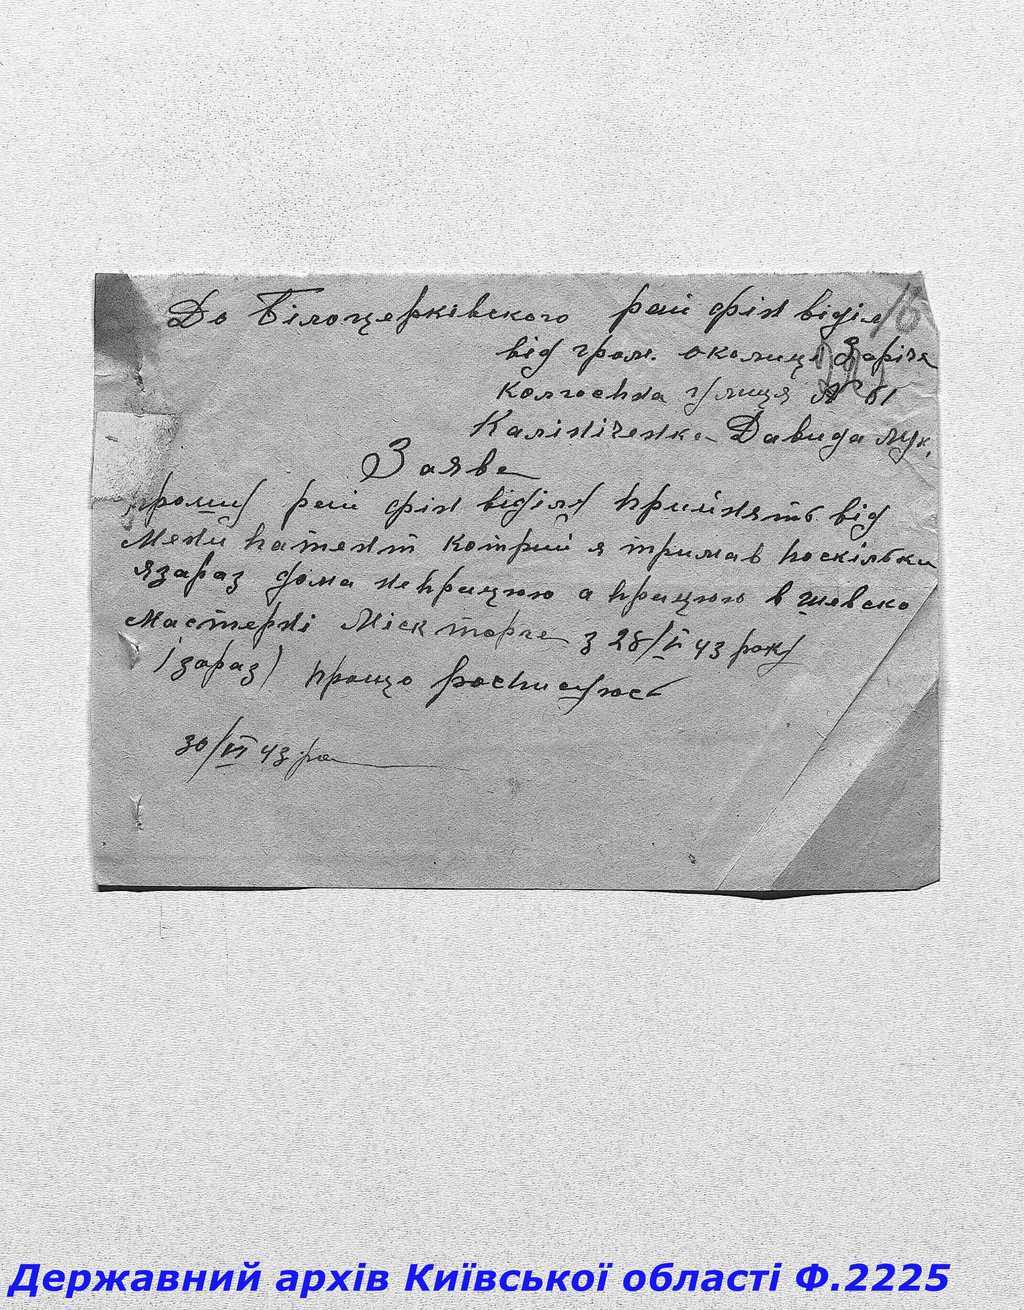 До Білоцерківского рай фін віділ
від гром. околиці Заріча
Колгоспна улиця № 61
Калініченка Давида Лук.
Заява
прошу рай фін віділу прийнять від
Мени патент котрий я тримав поскільки
я зараз дома не працюю а працюю в шевско
Мастерні Міск торга з 28/VI 43 року
і зараз) прощо росписуюсь
30/VI 43 ро
Державний архів Київської області Ф.2225